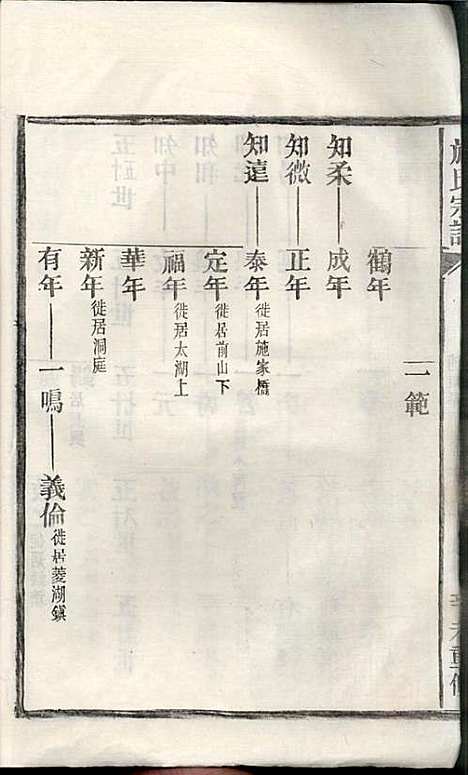 施氏宗譜
鶴年 二範
知柔 成年
知微 正年
知達 泰年 徙居施家橋
定年 徙居前山下
福年 徙居太湖上
華年
新年 徙居洞庭
有年 一鳴 義倫 徙居菱湖鎮